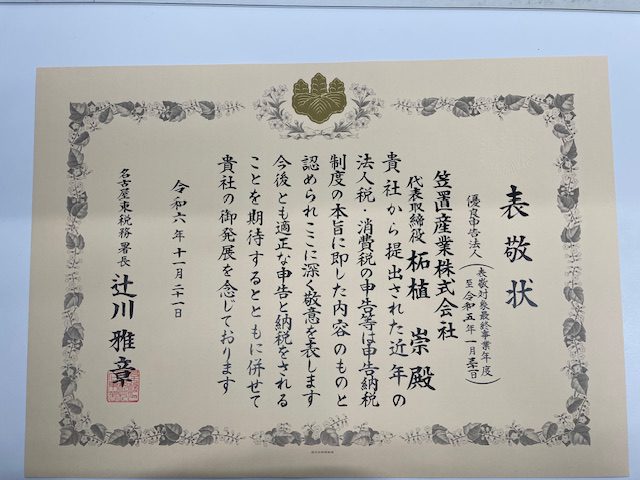 表敬状
優良申告法人（表敬対象最終事業年度 至 令和五年一月三十一日）
笠置産業株式会社
代表取締役 柘植 崇 殿
貴社から提出された近年の
法人税・消費税の申告等は申告納税
制度の本旨に即した内容のものと
認められここに深く敬意を表します
今後とも適正な申告と納税をされる
ことを期待するとともに併せて
貴社の御発展を念じております
令和六年十一月二十一日
名古屋東税務署長 辻川 雅章